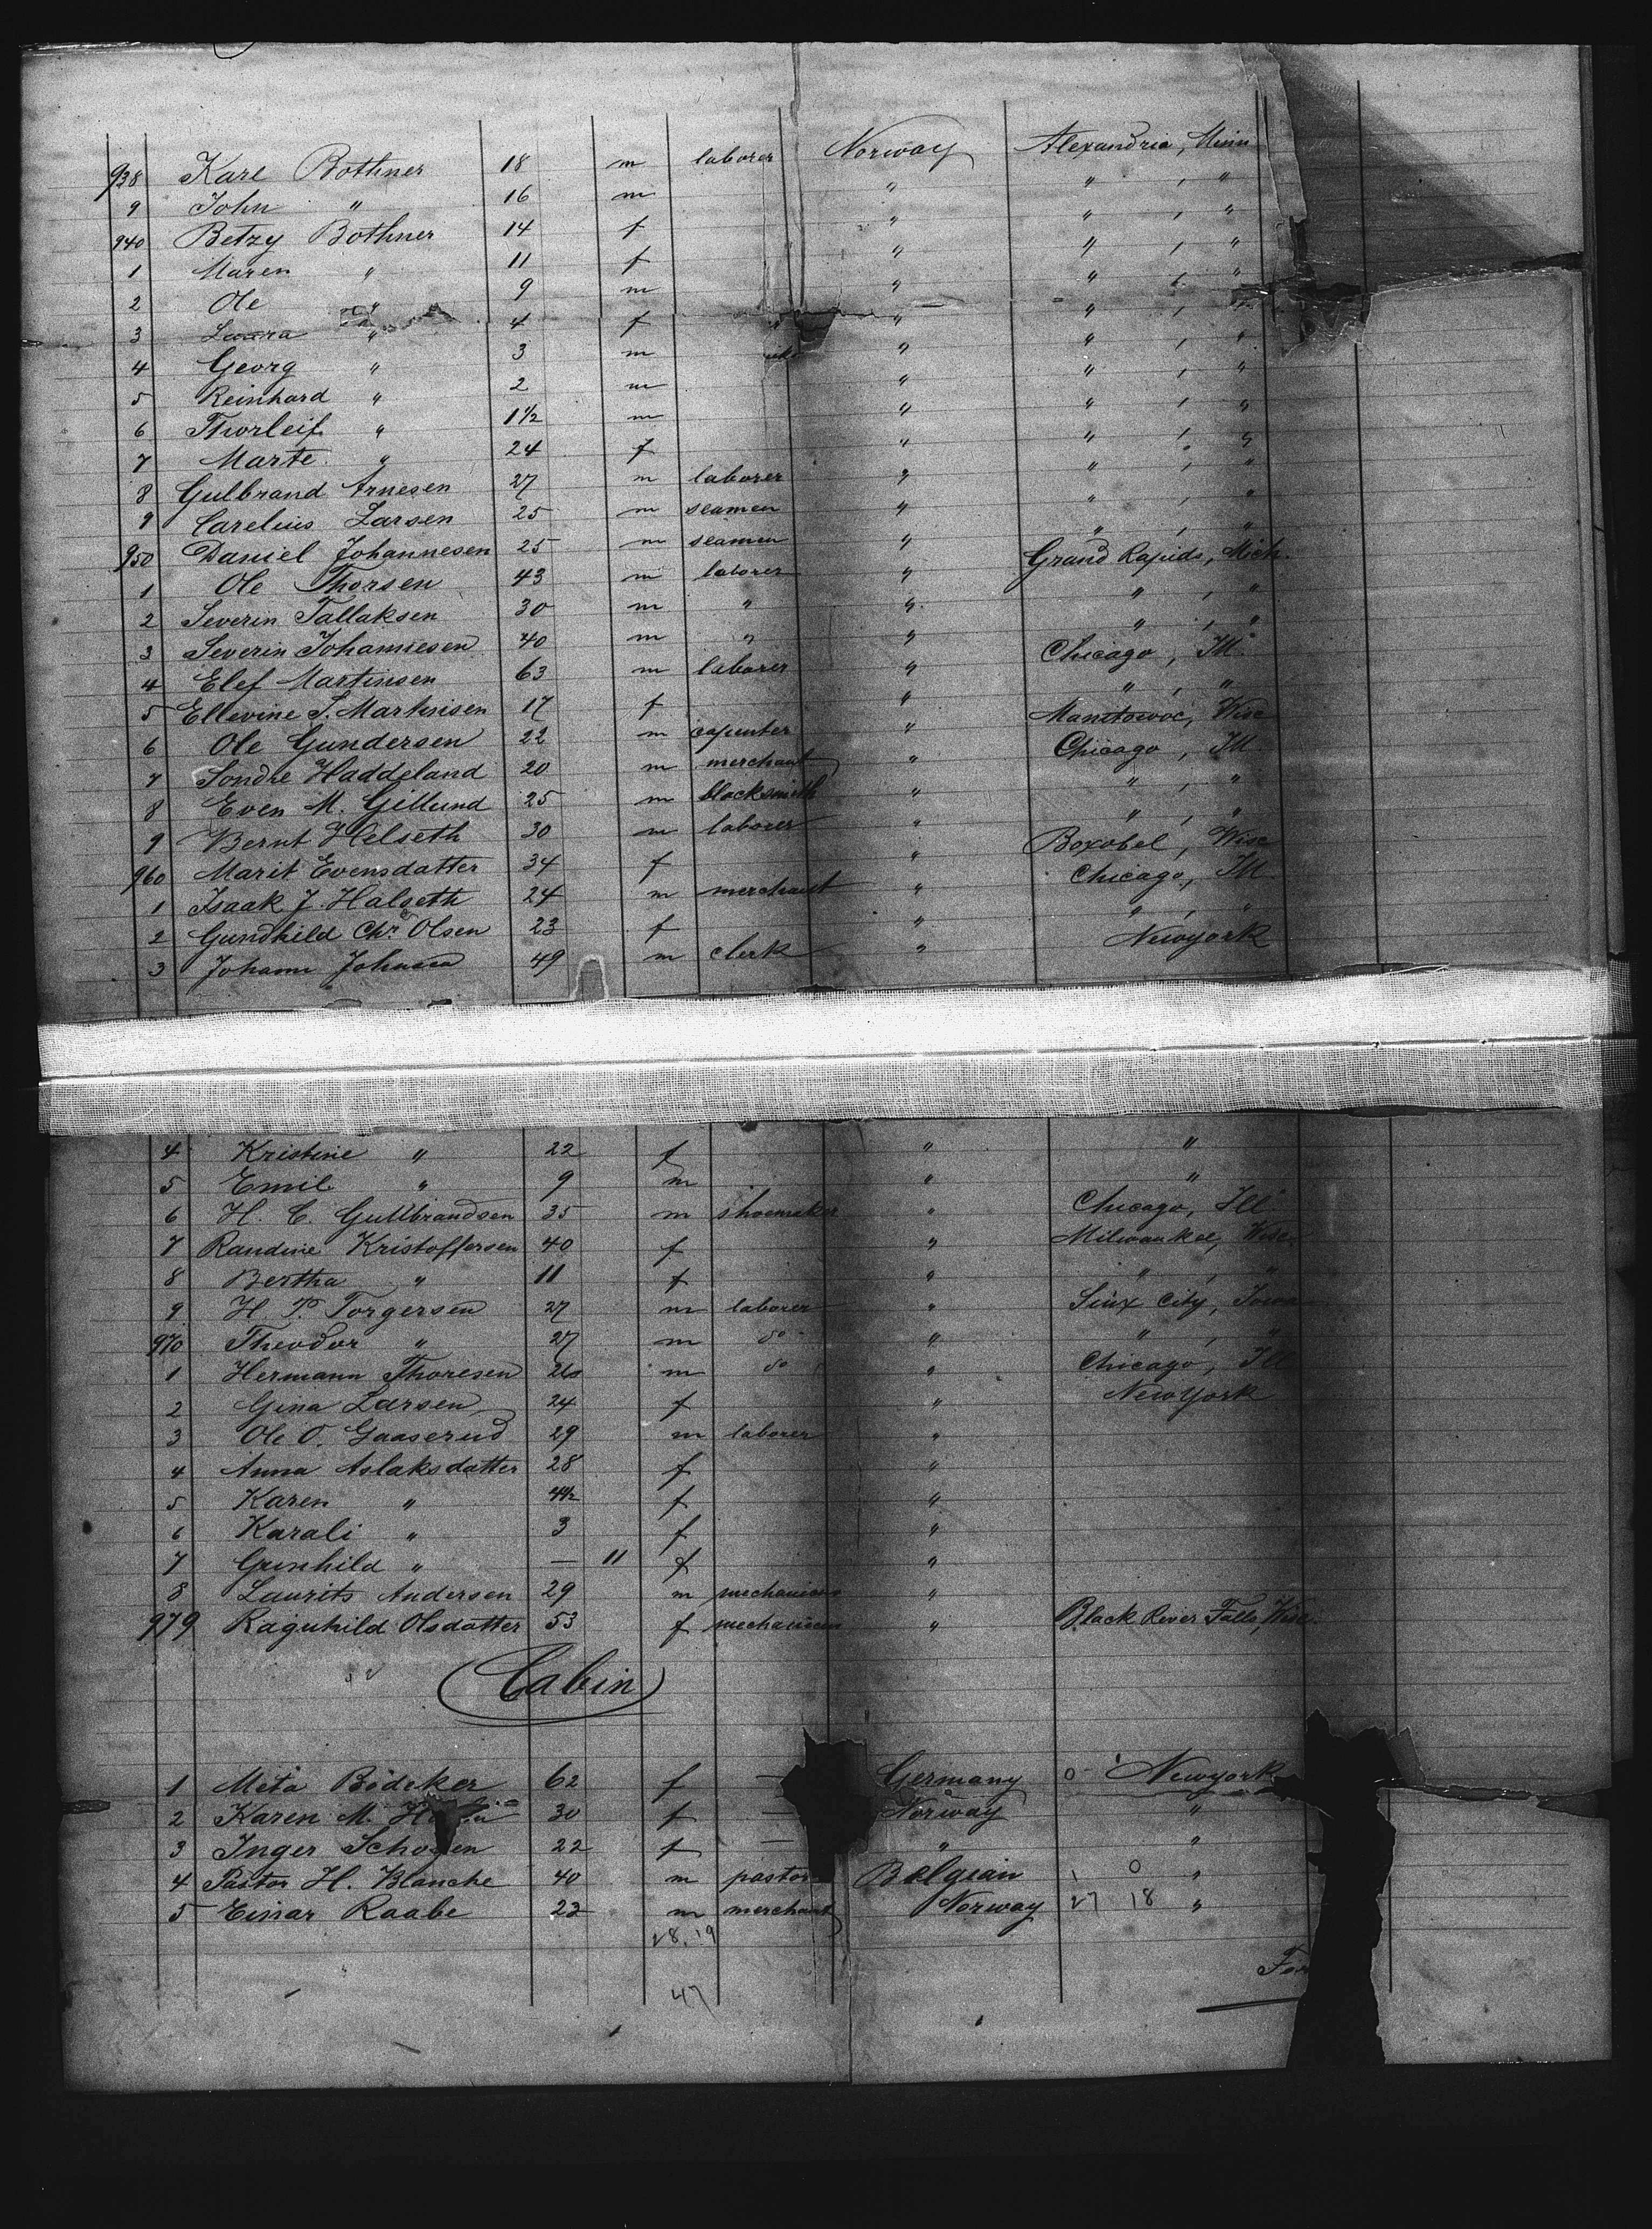 938 Karl Bothner 18 m laborer Norway Alexandria, Minn
9 John " 16 m " " , "
940 Betzy Bothner 14 f " " , "
1 Maren " 11 f " " , "
2 Ole " 9 m " " , "
3 Laura " 4 f " " , "
4 Georg " 3 m " " , "
5 Reinhard " 2 m " " , "
6 Thorleif " 1 1/2 m " " , "
7 Marte " 24 f " " , "
8 Gulbrand Arnesen 27 m laborer " " , "
9 Carelius Larsen 25 m seamen " " , "
950 Daniel Johannesen 25 m seamen " " , "
1 Ole Thorsen 43 m laborer " Grand Rapids, Mich.
2 Severin Tallaksen 30 m " " " , "
3 Severin Johannesen 40 m " " " , "
4 Elef Martinsen 63 m laborer " Chicago, Ill.
5 Ellevine S. Martinsen 17 f " " , "
6 Ole Gundersen 22 m capenter " Manitowoc, Wisc
7 Sondre Haddeland 20 m merchant " Chicago, Ill.
8 Even M. Gillund 25 m blacksmith " " , "
9 Bernt Helseth 30 m laborer " " , "
960 Marit Evensdatter 34 f " Boxobel, Wisc
1 Isaak J. Halseth 24 m merchant " Chicago, Ill.
2 Gundhild Chr. Olsen 23 f " " , "
3 Johann Johnsen 49 m clerk " Newyork
4 Kristine " 22 f " "
5 Emil " 9 m " "
6 H. C. Gullbrandsen 35 m shoemaker " Chicago, Ill.
7 Randine Kristoffersen 40 f " Milwaukee, Wisc.
8 Bertha " 11 f " " , "
9 H. P. Torgersen 27 m laborer " Siux City, Iowa
970 Theodor " 27 m do " " , "
1 Hermann Thoresen 26 m do " Chicago, Ill
2 Gina Larsen 24 f " New York
3 Ole O. Gaaserud 29 m laborer "
4 Anna Aslaksdatter 28 f "
5 Karen " 4 1/2 f "
6 Karali " 3 f "
7 Gunhild " — 11 f "
8 Laurits Andersen 29 m mechanicus "
979 Ragnhild Olsdatter 53 f mechanicus " Black River Falls, Wisc.
Cabin
1 Meta Bödeker 62 f — Germany 0 Newyork
2 Karen M. 30 f — Norway "
3 Inger Schoyen 22 f — " "
4 Pastor H. Blanche 40 m pastor Belgian 1 0 "
5 Einar Raabe 22 m merchant Norway 27 18 "
28. 19
47